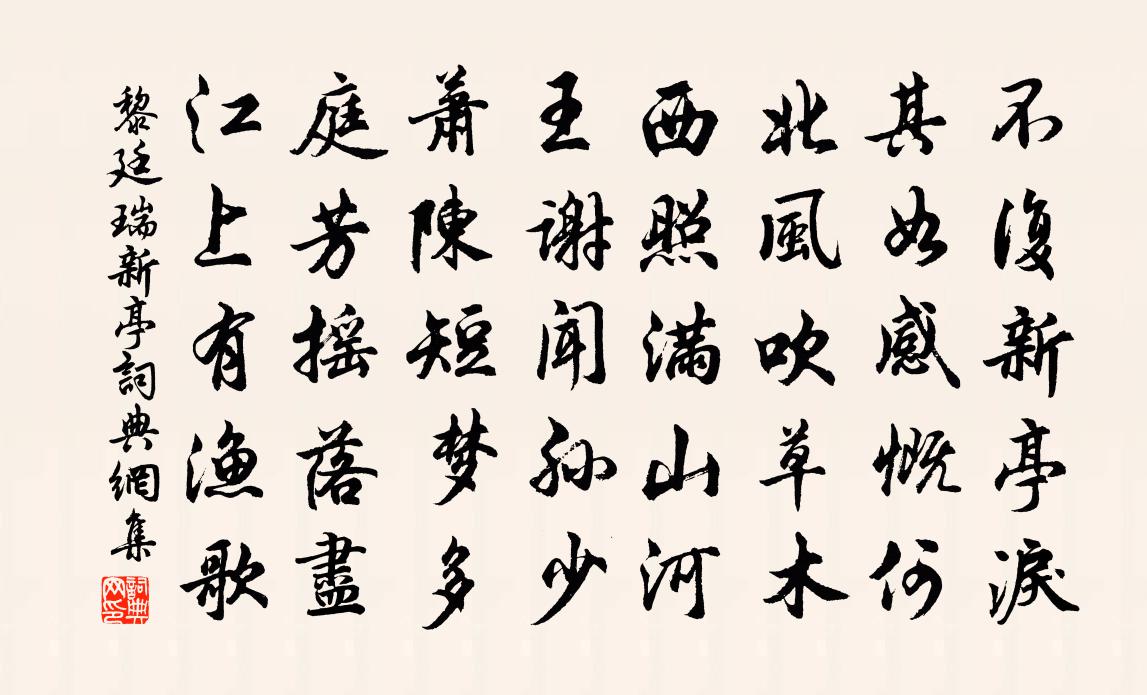 不復新亭淚
其如感慨何
北風吹草木
西照滿山河
王謝聞孙少
蕭陳短梦多
庭芳摇落盡
江上有漁歌
黎廷瑞新亭詞典網集
詞典网印